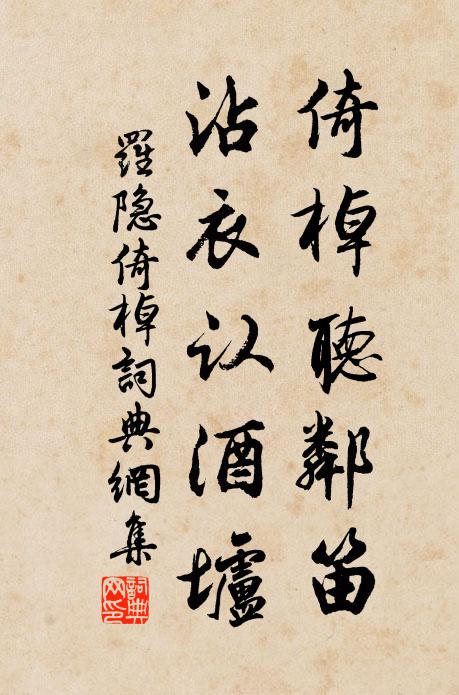 倚棹聽鄰笛
沾衣认酒壚
羅隐倚棹詞典網集
詞典